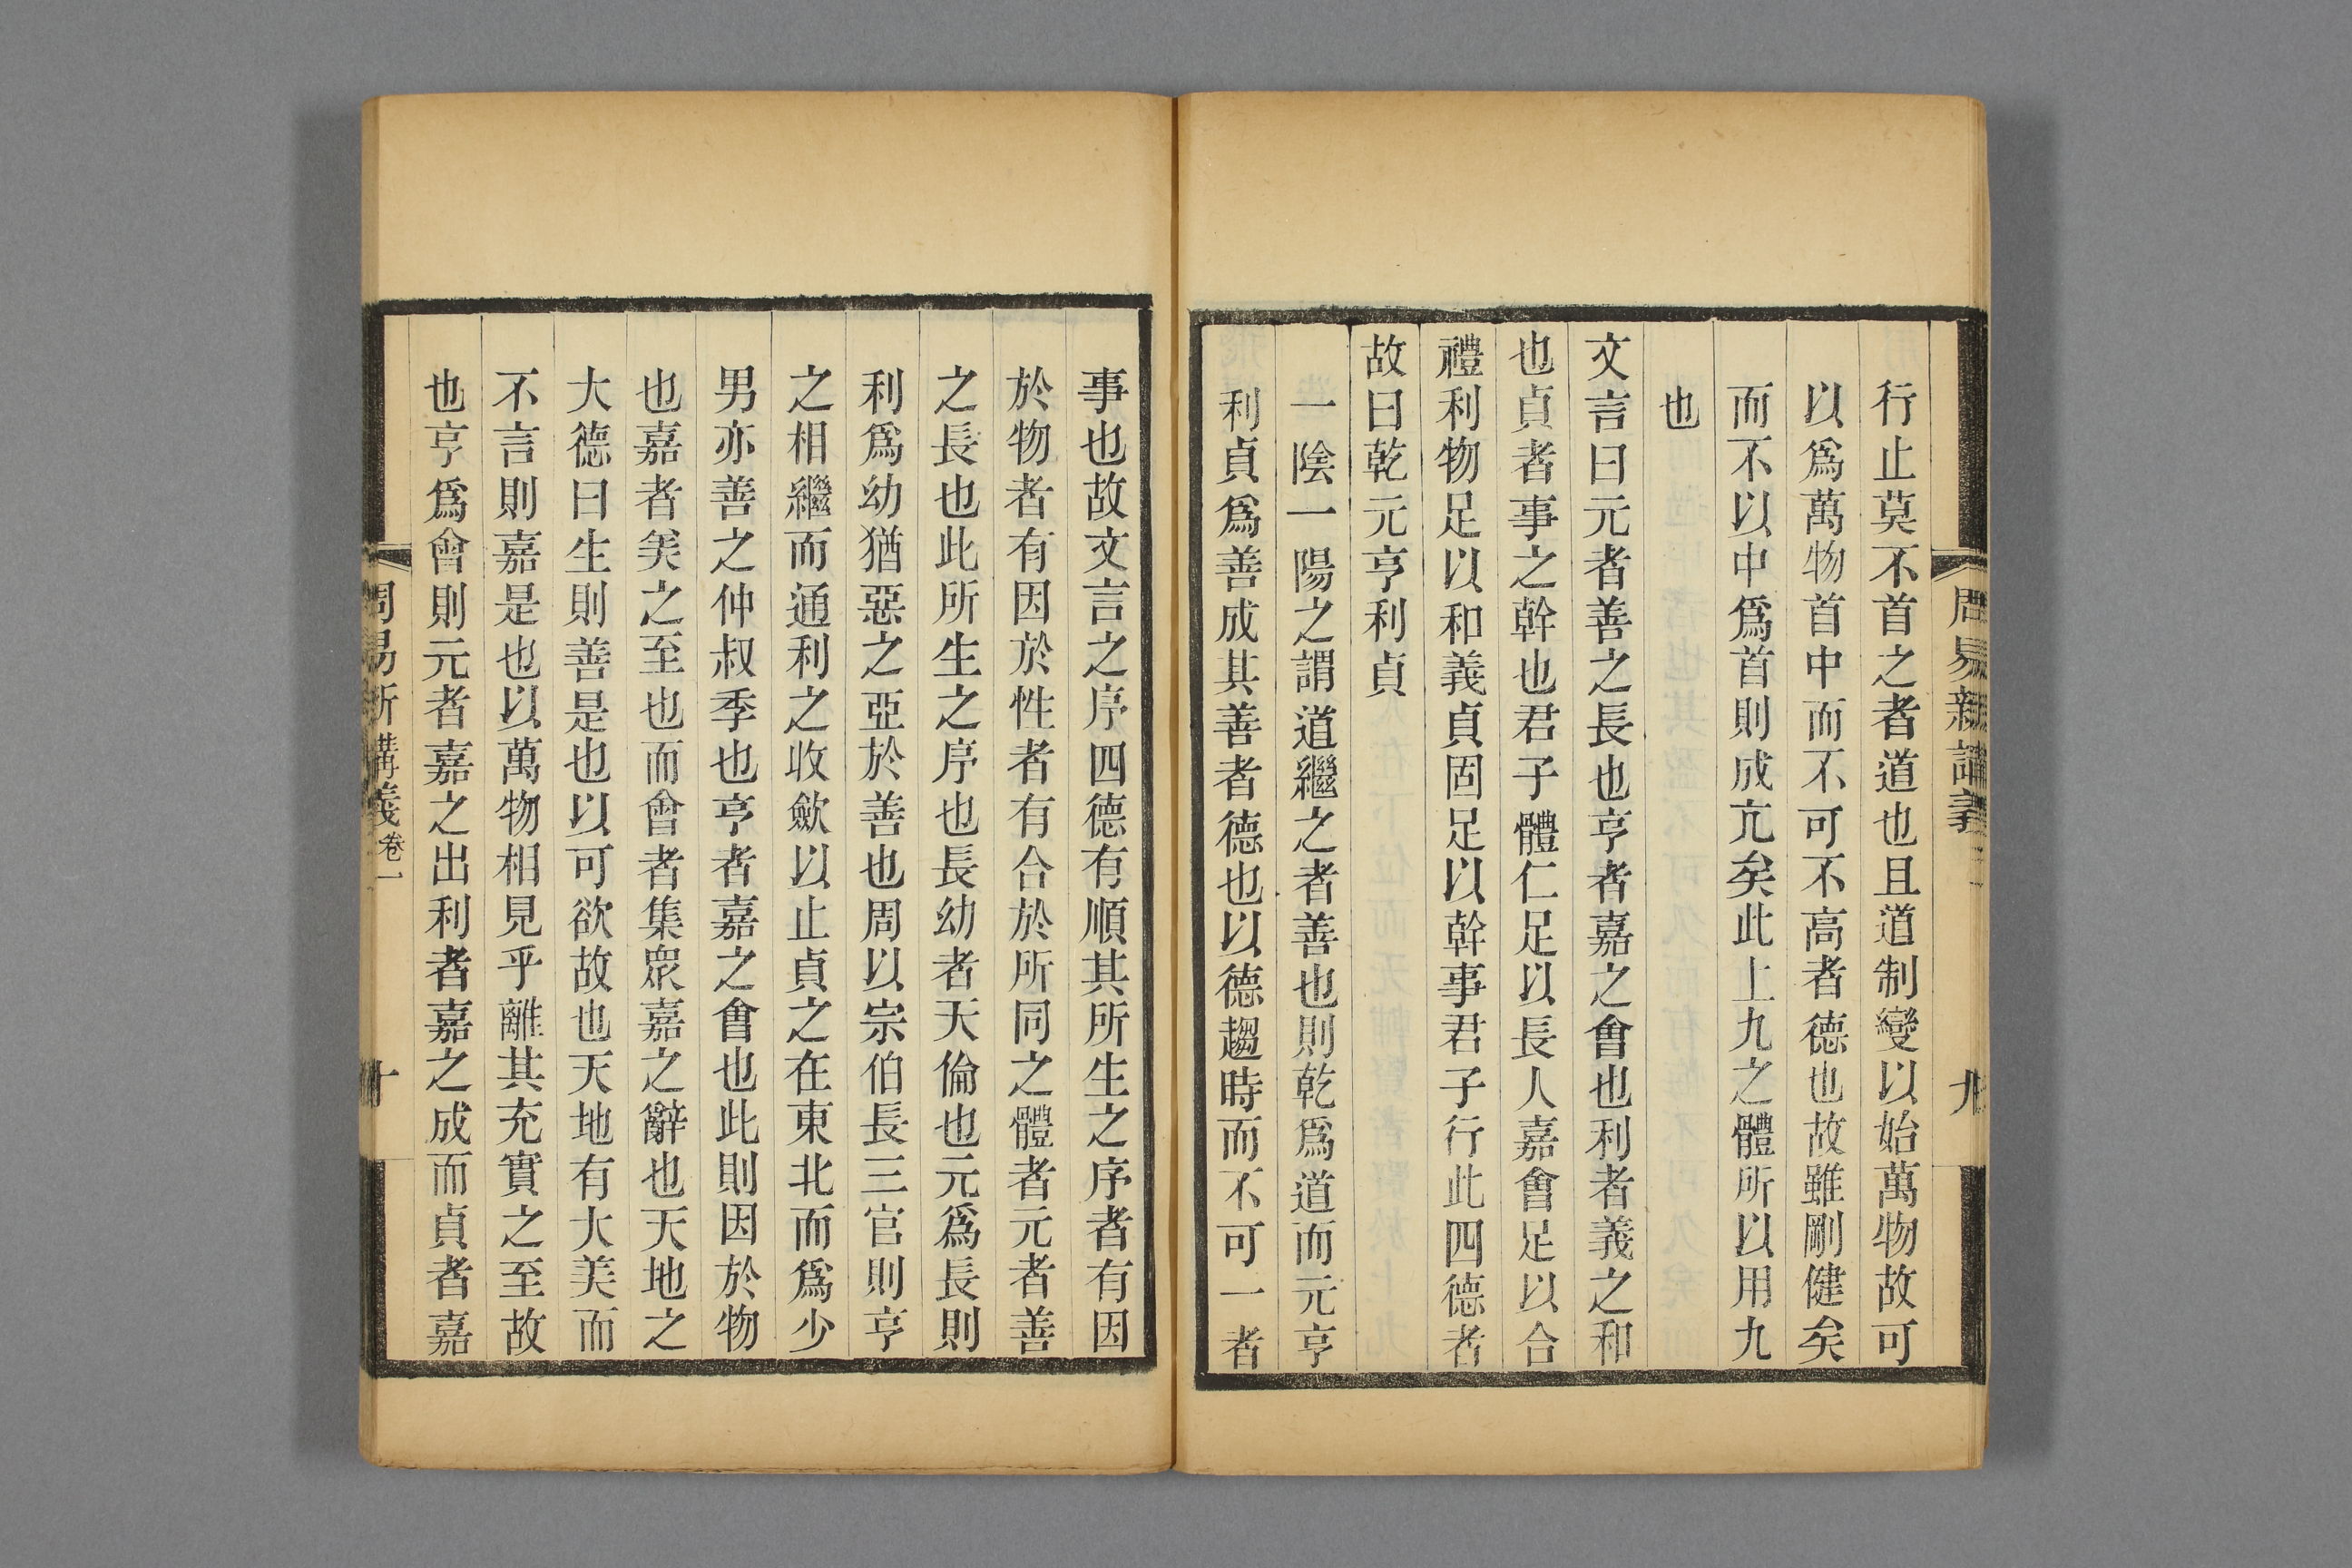 周易新講義
九
行止莫不首之者道也且道制變以始萬物故可
以爲萬物首中而不可不高者德也故雖剛健矣
而不以中爲首則成亢矣此上九之體所以用九
也
文言曰元者善之長也亨者嘉之會也利者義之和
也貞者事之幹也君子體仁足以長人嘉會足以合
禮利物足以和義貞固足以幹事君子行此四德者
故曰乾元亨利貞
一陰一陽之謂道繼之者善也則乾爲道而元亨
利貞爲善成其善者德也以德趨時而不可一者
事也故文言之序四德有順其所生之序者有因
於物者有因於性者有合於所同之體者元者善
之長也此所生之序也長幼者天倫也元爲長則
利爲幼猶惡之亞於善也周以宗伯長三官則亨
之相繼而通利之收斂以止貞之在東北而爲少
男亦善之仲叔季也亨者嘉之會也此則因於物
也嘉者美之至也而會者集眾嘉之辭也天地之
大德曰生則善是也以可欲故也天地有大美而
不言則嘉是也以萬物相見乎離其充實之至故
也亨爲會則元者嘉之出利者嘉之成而貞者嘉
周易新講義卷一
十